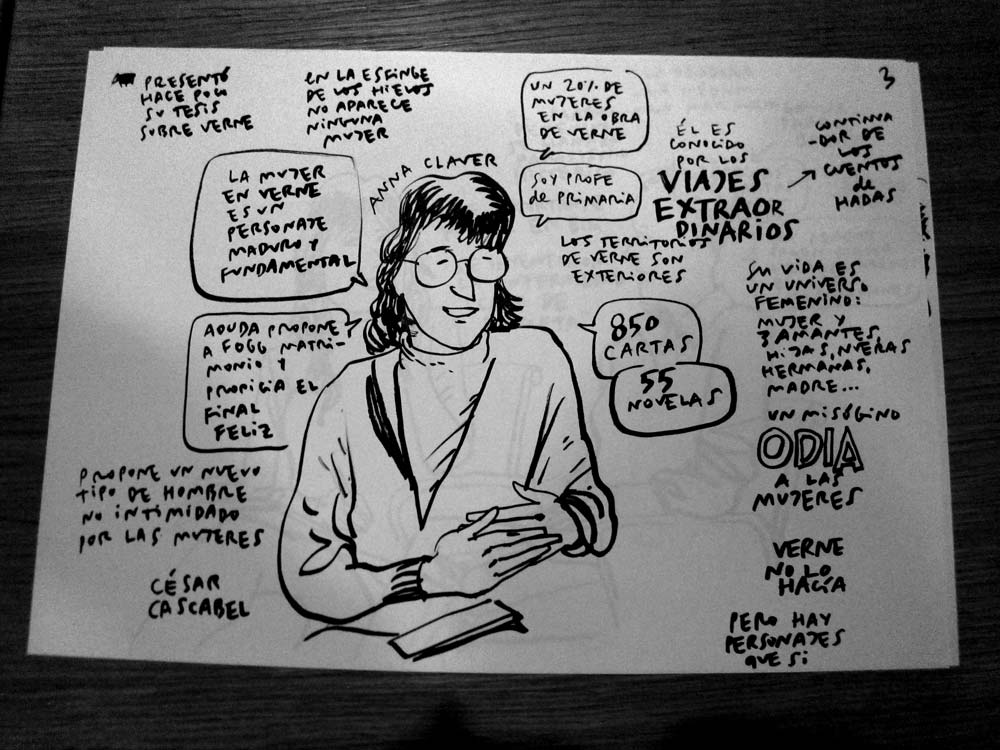 PRESENTÓ
HACE POCO
SU TESIS
SOBRE VERNE
EN LA ESFINGE
DE LOS HIELOS
NO APARECE
NINGUNA
MUJER
UN 20% DE
MUJERES
EN LA OBRA
DE VERNE
3
ÉL ES
CONOCIDO
POR LOS
VIAJES
EXTRAOR
DINARIOS
CONTINUA
-DOR DE
LOS
CUENTOS
de
HADAS
LA MUJER
EN VERNE
ES UN
PERSONAJE
MADURO Y
FUNDAMENTAL
ANNA CLAVER
SOY PROFE
de PRIMARIA
LOS TERRITORIOS
DE VERNE SON
EXTERIORES
AOUDA PROPONE
A FOGG MATRI-
MONIO Y
PROPICIA EL
FINAL
FELIZ
850
CARTAS
55
NOVELAS
SU VIDA ES
UN UNIVERSO
FEMENINO:
MUJER Y
3 AMANTES,
HIJAS, NUERAS
HERMANAS,
MADRE...
UN MISÓGINO
ODIA
A LAS
MUJERES
PROPONE UN NUEVO
TIPO DE HOMBRE
NO INTIMIDADO
POR LAS MUJERES
CÉSAR
CASCABEL
VERNE
NO LO
HACÍA
PERO HAY
PERSONAJES
QUE SÍ